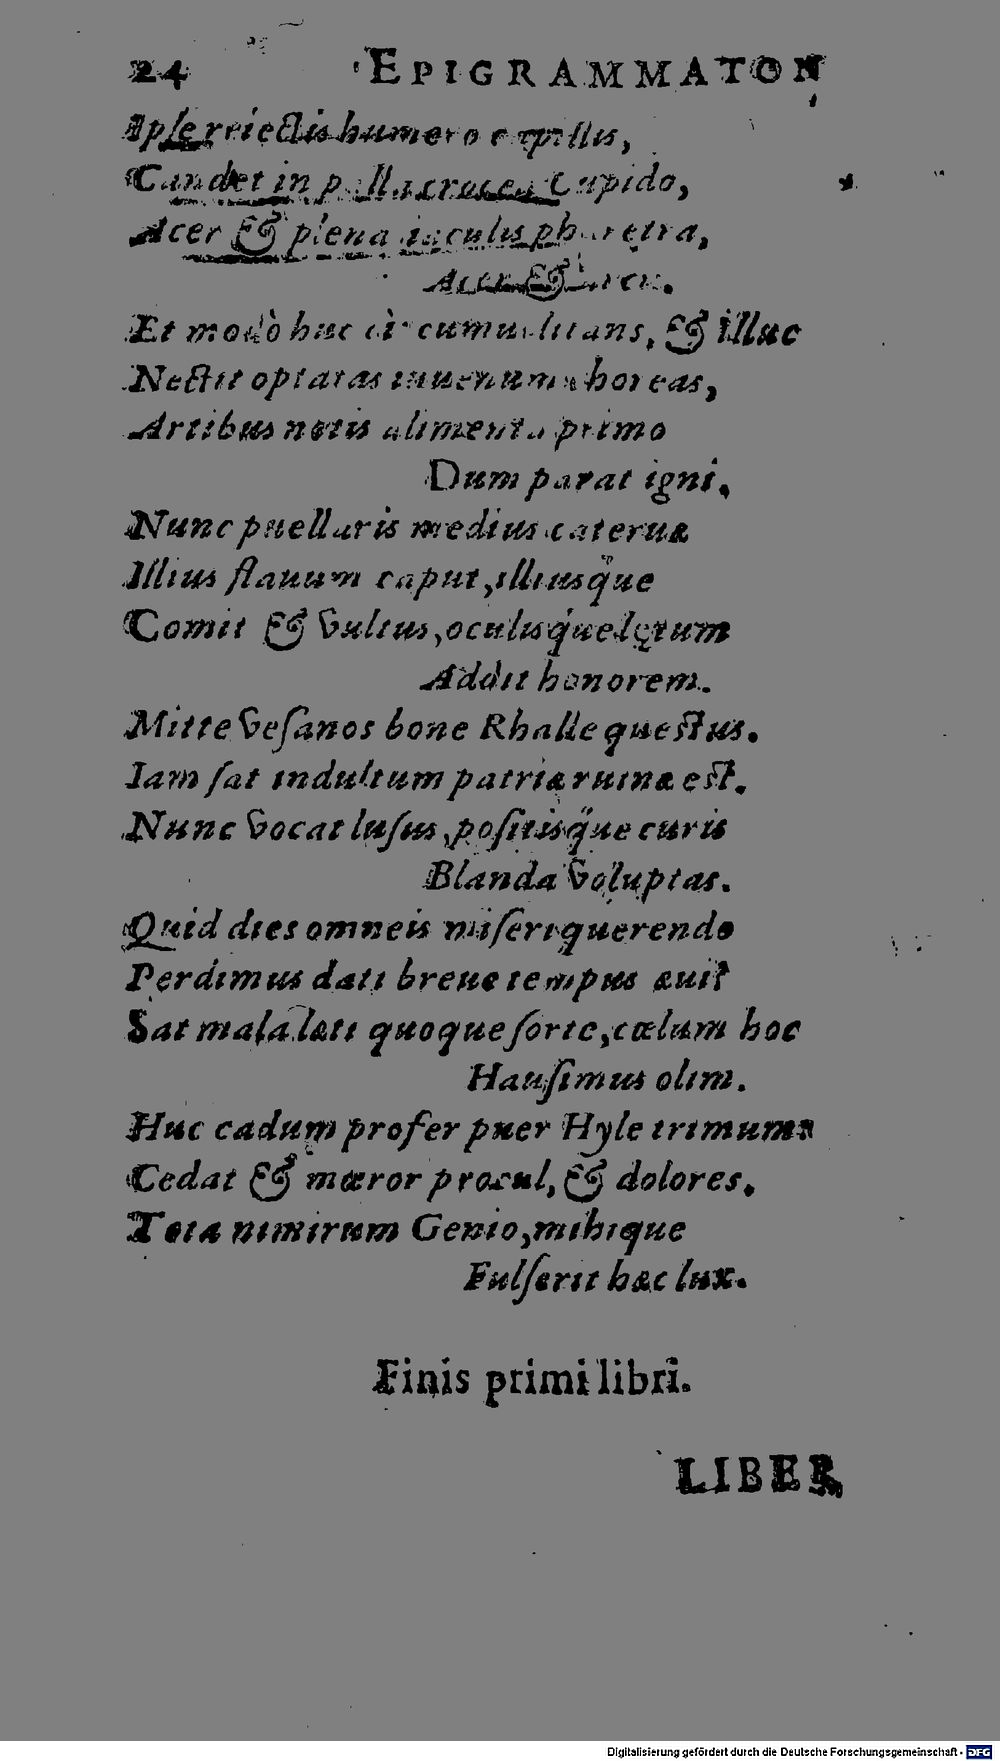 24 EPIGRAMMATON
Ipse reiectis humero capillis,
Candet in palla crocea Cupido,
Acer & plena iaculis pharetra,
Acer & arcu.
Et modò huc circumuolitans, & illuc
Nectit optatas iuuenum choreas,
Artibus notis alimenta primo
Dum parat igni.
Nunc puellaris medius cateruæ
Illius flauum caput, illiusq́ue
Comit & vultus, oculisq́ue lętum
Addit honorem.
Mitte veſanos bone Rhalle queſtus.
Iam ſat indultum patriæ ruinæ eſt.
Nunc vocat luſus, poſitisq́ue curis
Blanda voluptas.
Quid dies omneis miſeri querendo
Perdimus dati breue tempus æui?
Sat mala læti quoque ſorte, cœlum hoc
Hauſimus olim.
Huc cadum profer puer Hyle trimum:
Cedat & mœror procul, & dolores.
Tota nimirum Genio, mihique
Fulſerit hæc lux.
Finis primi libri.
LIBER
Digitalisierung gefördert durch die Deutsche Forschungsgemeinschaft - DFG